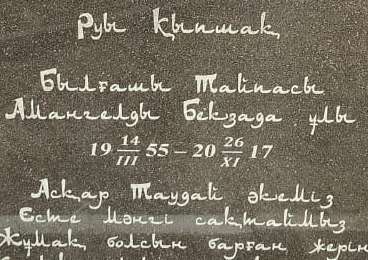 Руы Қыпшақ
Былғашы Тайпасы
Амангелды Бекзада ұлы
19 14/III 55 – 20 26/XI 17
Асқар Таудай әкеміз
Есте мәңгі сақтаймыз
Жұмақ болсын барған жерің